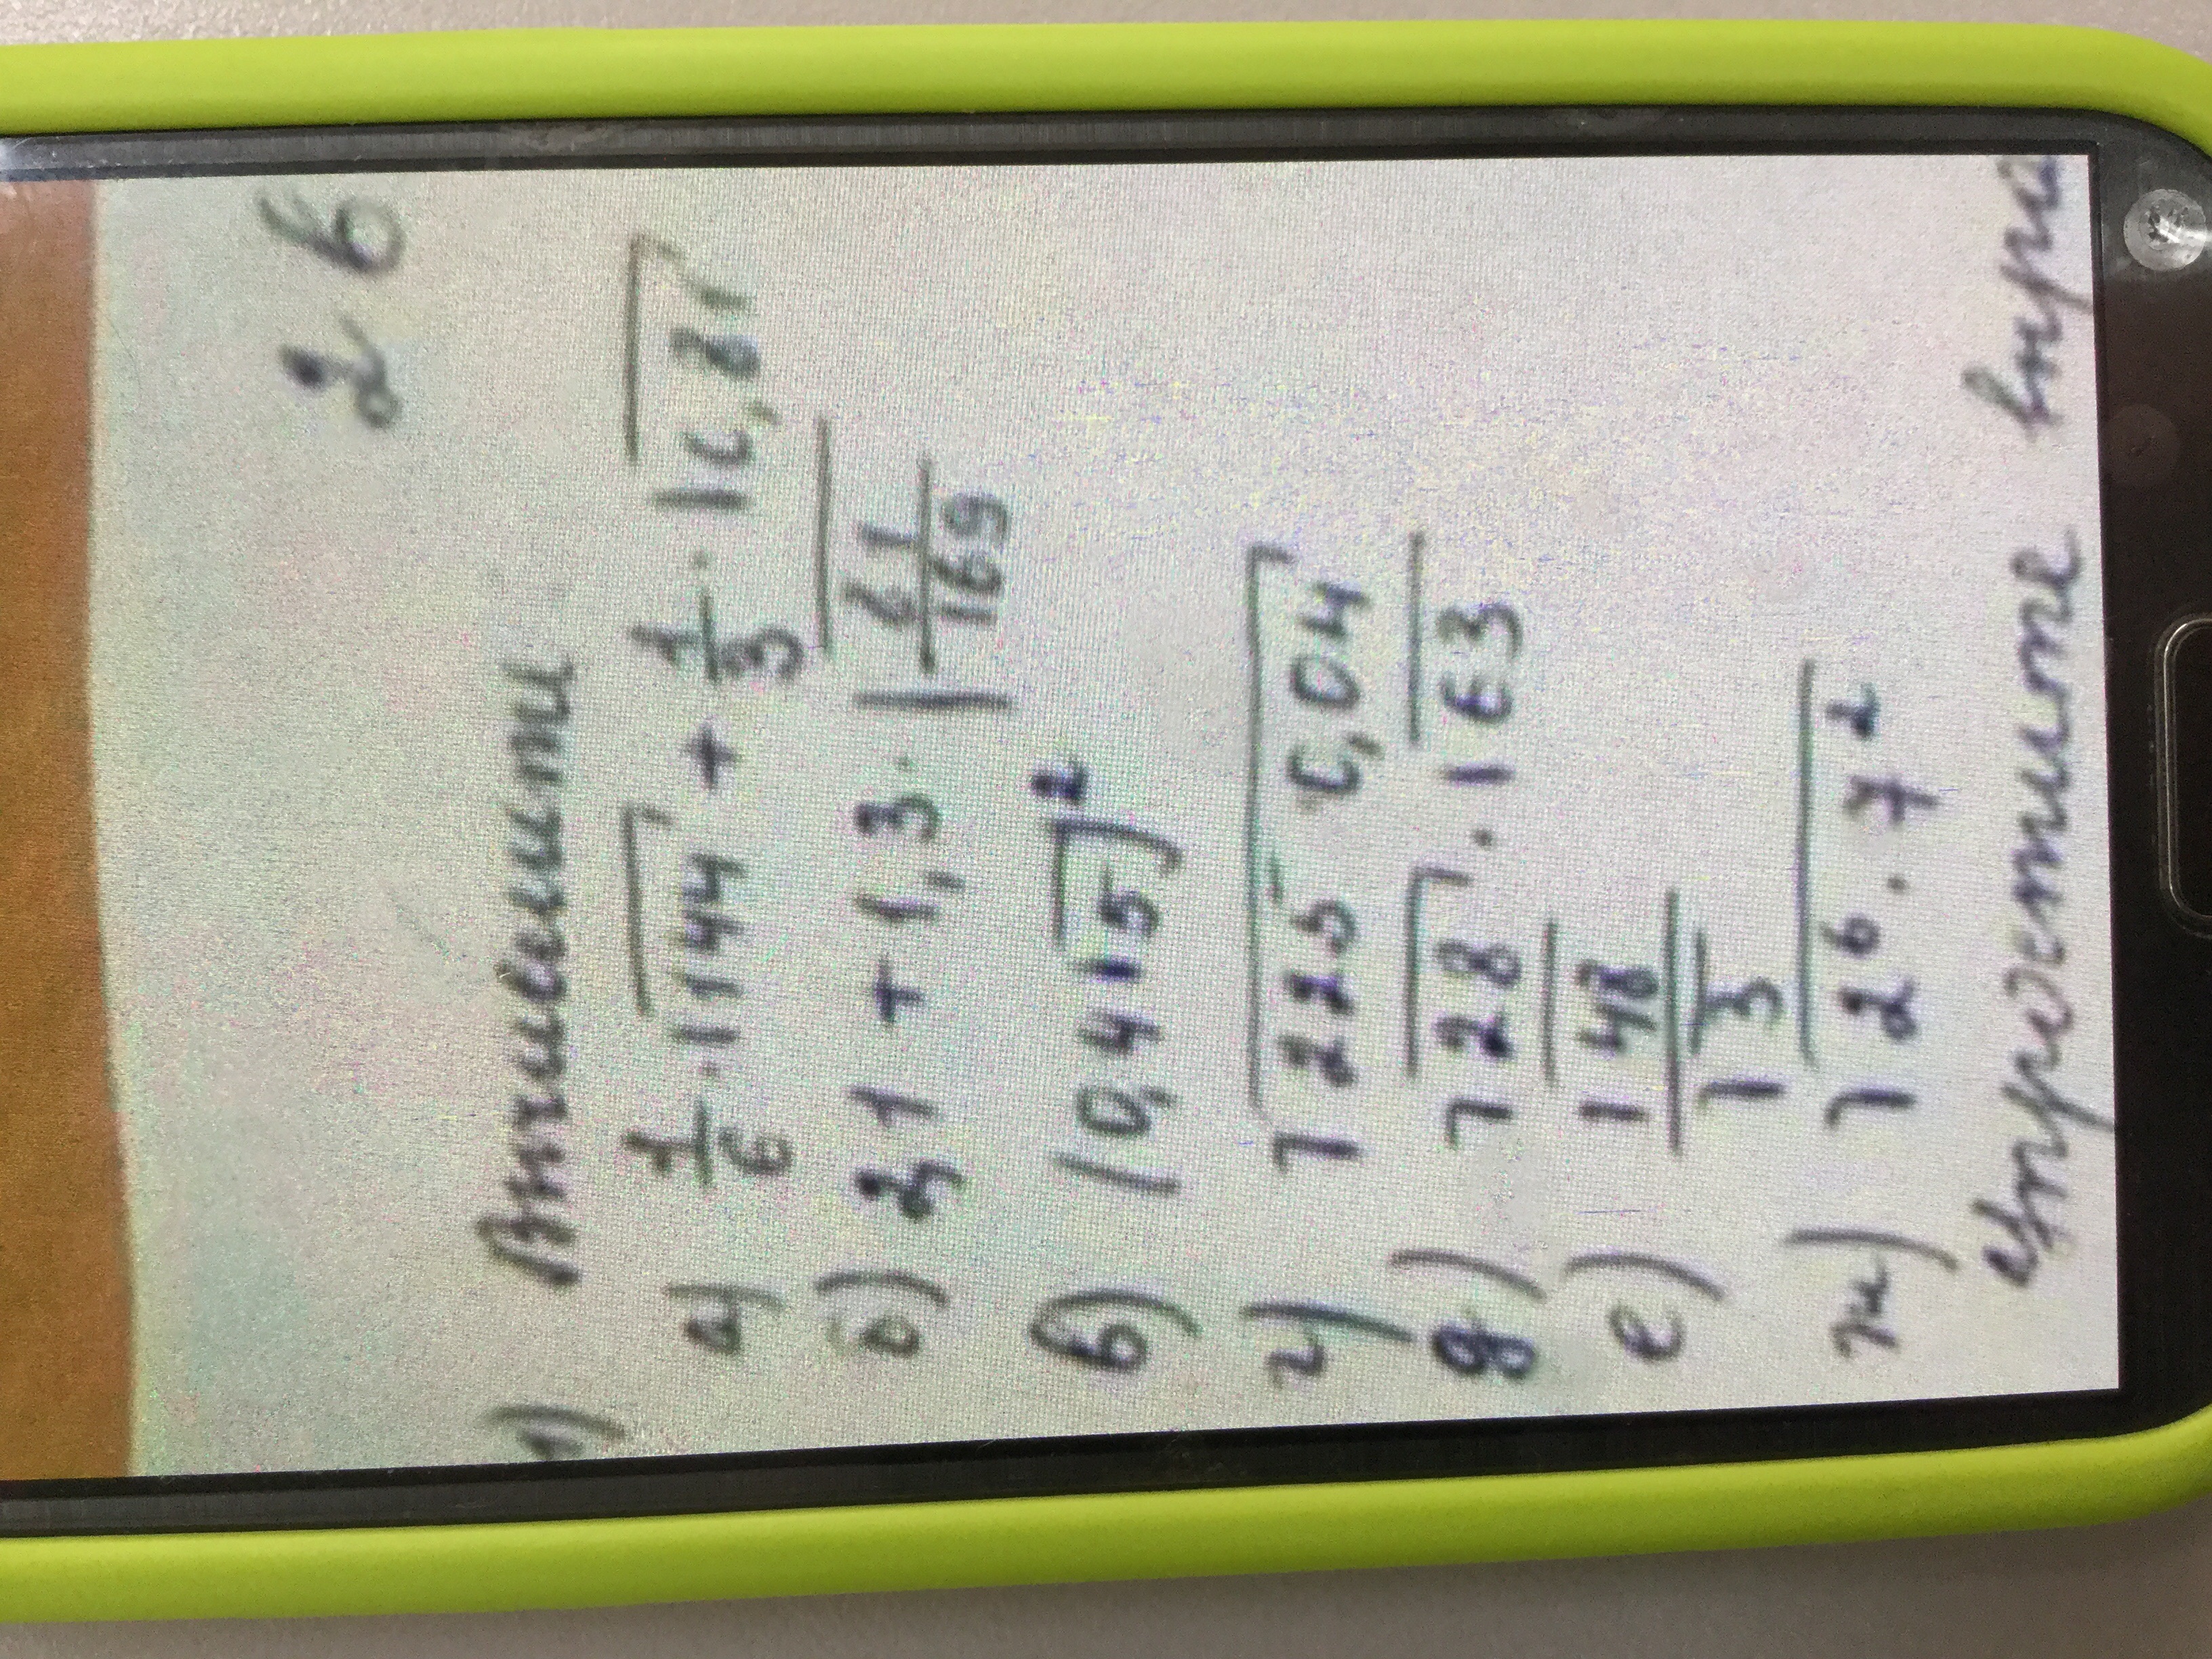 2 в
1) Вычислить
а) 1/6 · √144 + 1/3 · √0,81
б) 2,1 + 1,3 · √(61/169)
в) (0,4√15)²
г) √(225 0,04)
д) √28 · √63
е) √48 / √3
ж) √(2⁶ · 7²)
Упростите